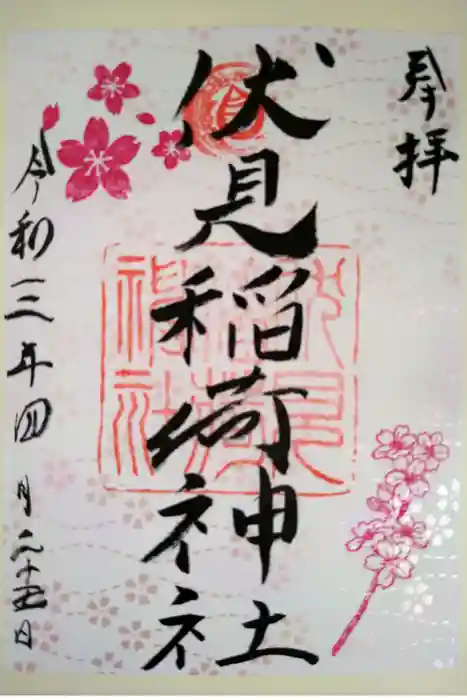 奉拝
伏見稲荷神社
令和三年四月二十五日